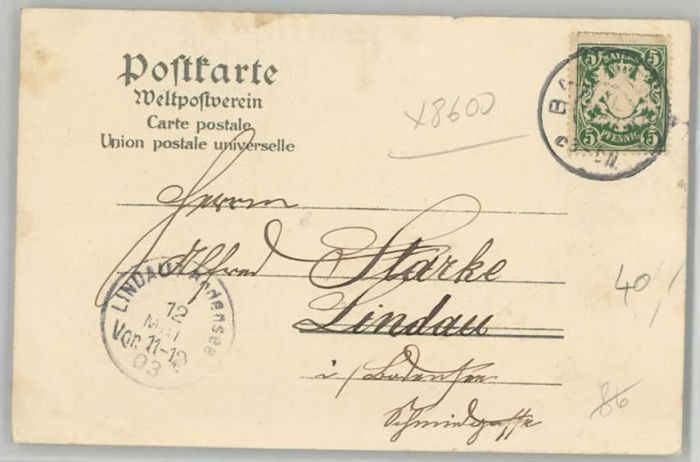 Postkarte
Weltpostverein
Carte postale
Union postale universelle
x8600
5 BAYERN 5
5 PFENNIG 5
Herrn
Alfred Starke
Lindau
i/Bodensee
Schmidgasse
LINDAU i. Bodensee
12
MAI
Vor. 11-12
03
40,/
86